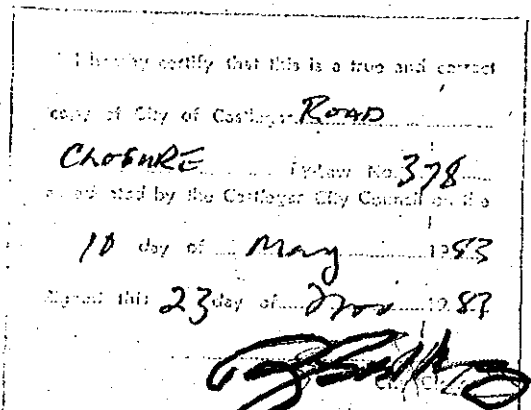 I hereby certify that this is a true and correct
copy of City of Castlegar ROAD
CLOSURE By-Law No. 378
as adopted by the Castlegar City Council on the
10 day of May 1983
Signed this 23 day of Nov 1983
City Clerk